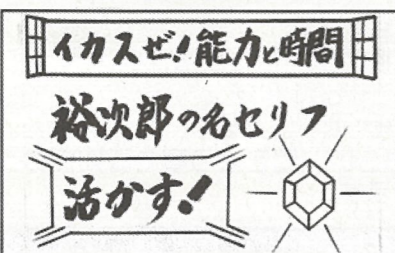 イカスぜ!能力と時間
裕次郎の名セリフ
活かす!